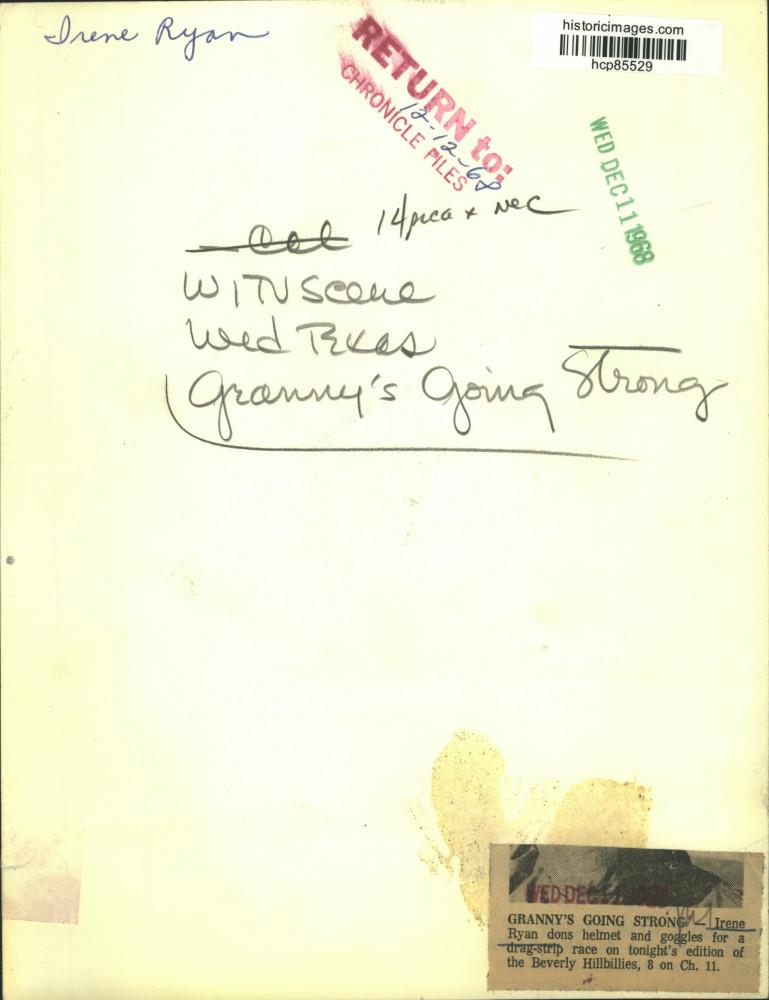 Irene Ryan
historicimages.com
hcp85529
RETURN to:
CHRONICLE FILES
12-12-68
WED DEC 11 1968
Col
14 pica x nec
WITN Scene
Wed Texas
Granny's Going Strong
WED DEC 11 1968
GRANNY'S GOING STRONG — Irene
Ryan dons helmet and goggles for a
drag-strip race on tonight's edition of
the Beverly Hillbillies, 8 on Ch. 11.